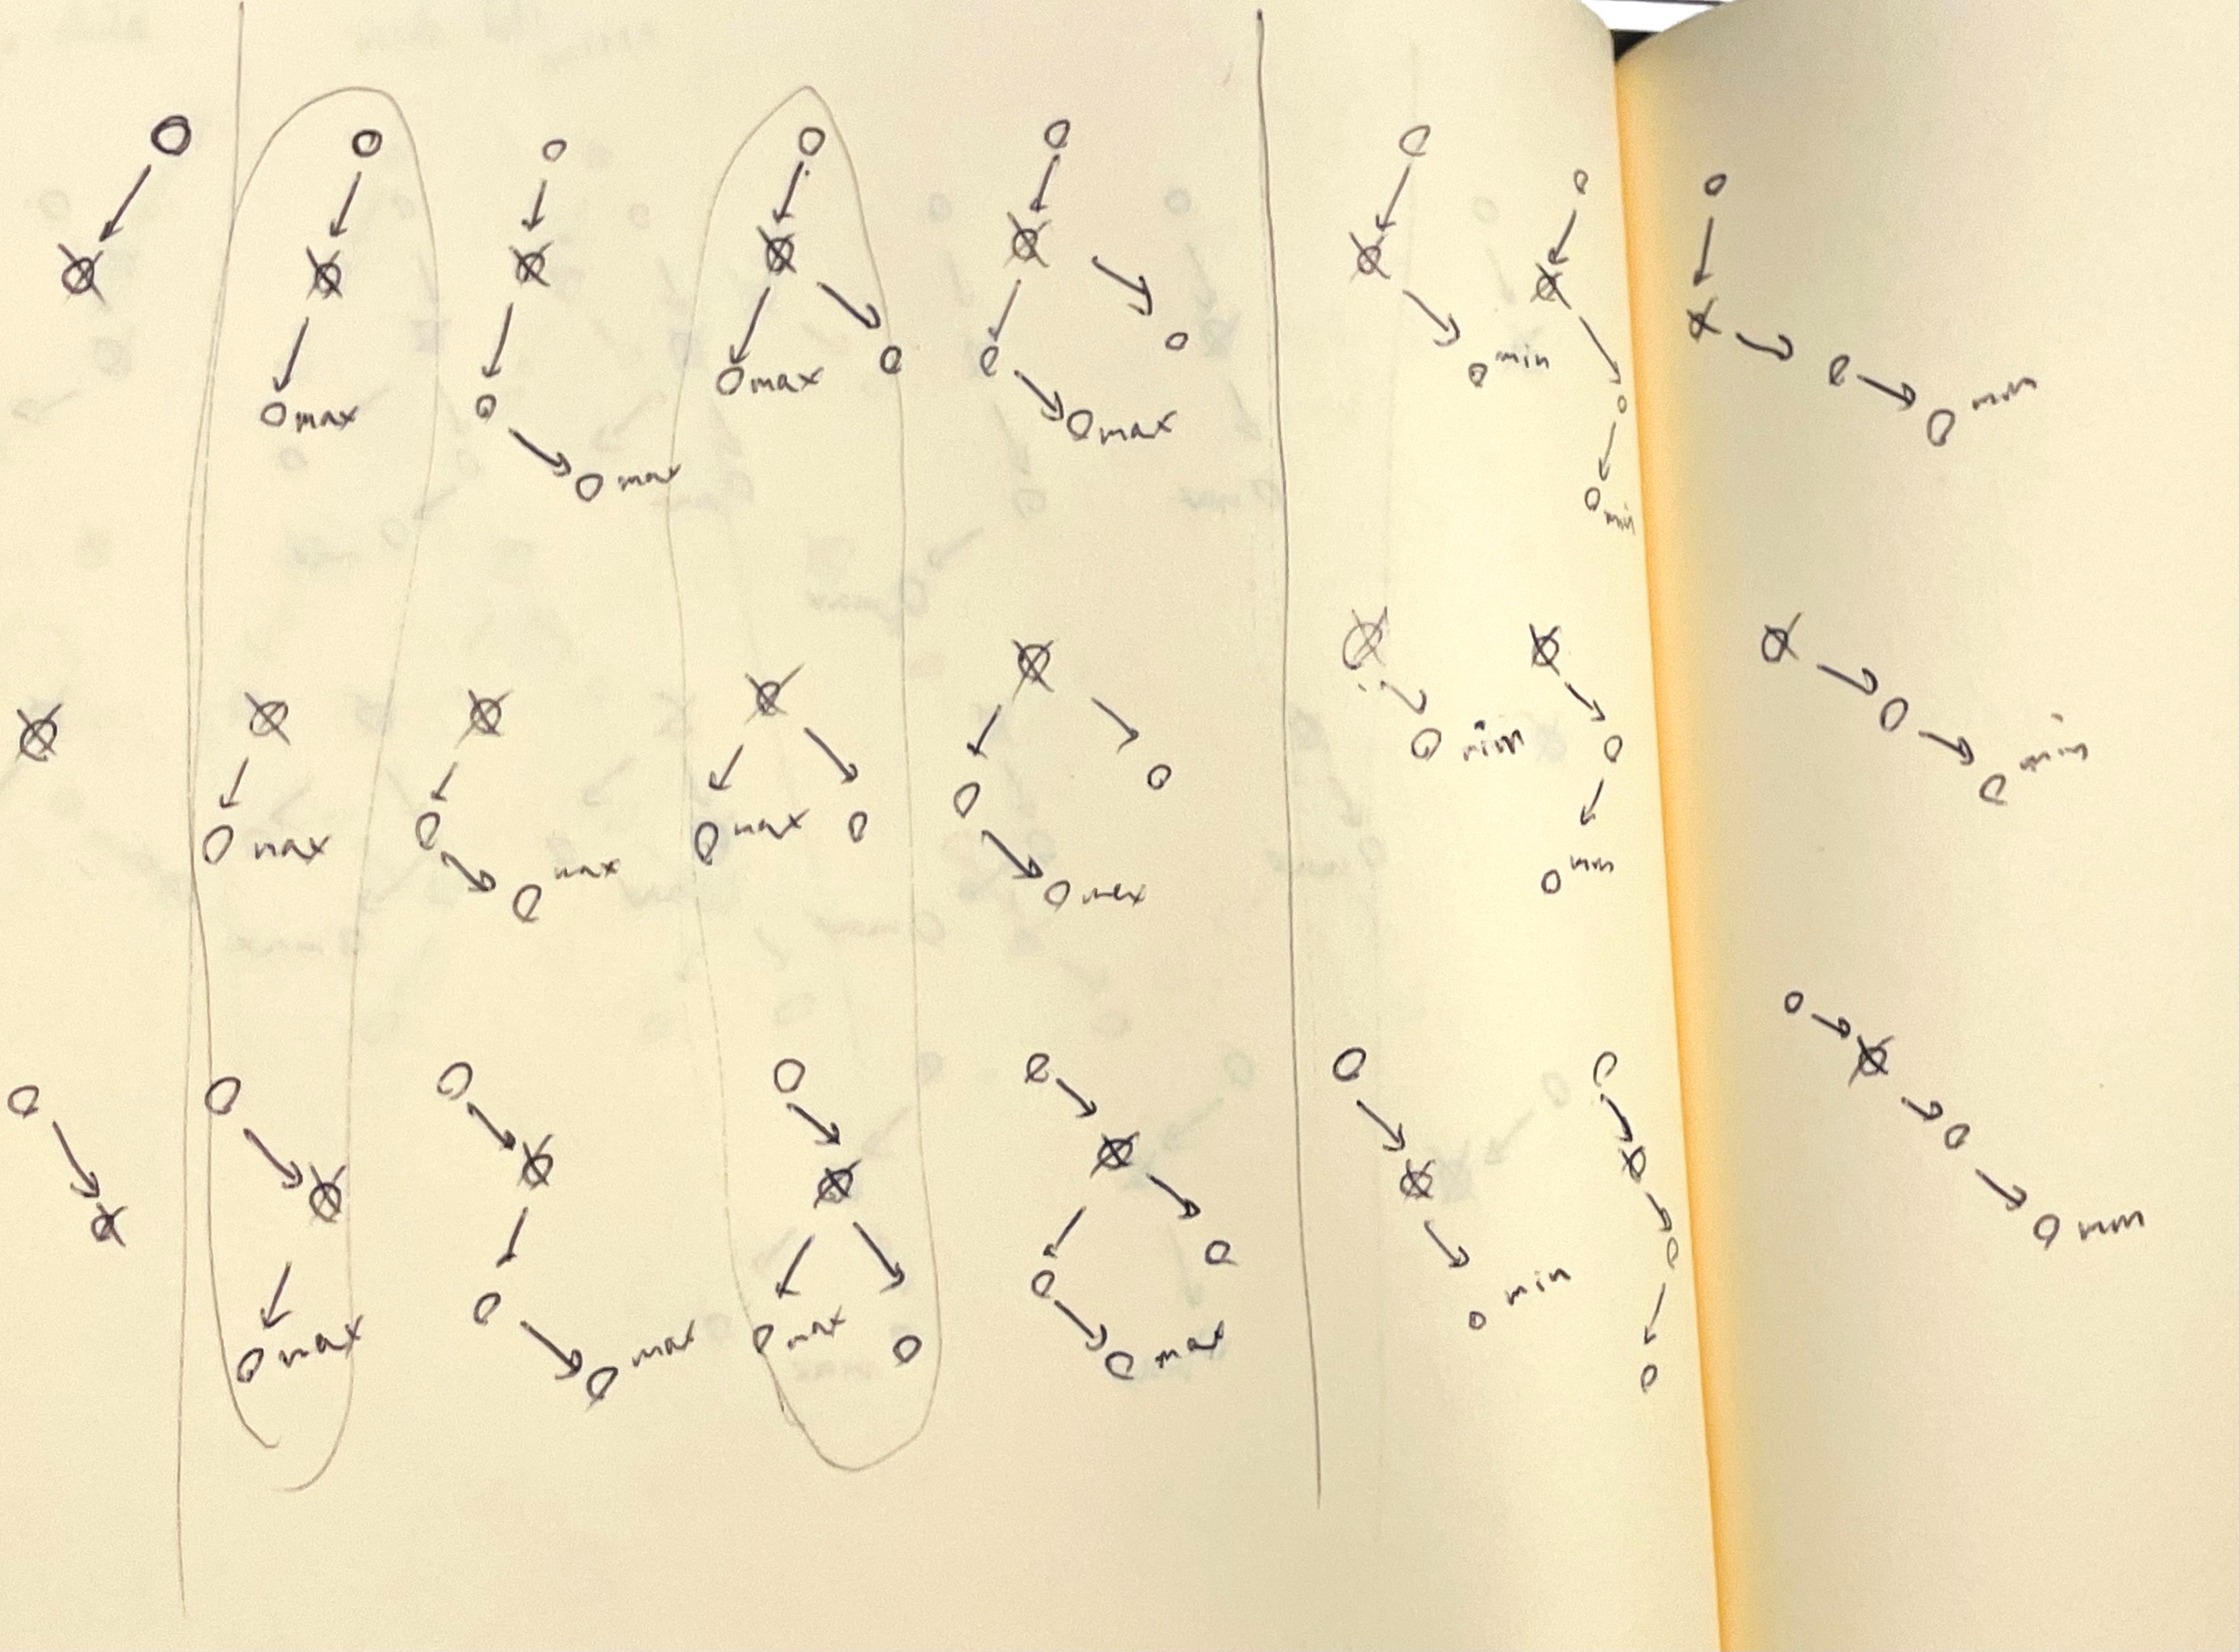 min
max
max
max
max
min
min
min
min
max
max
max
max
min
min
max
max
max
max
min
min